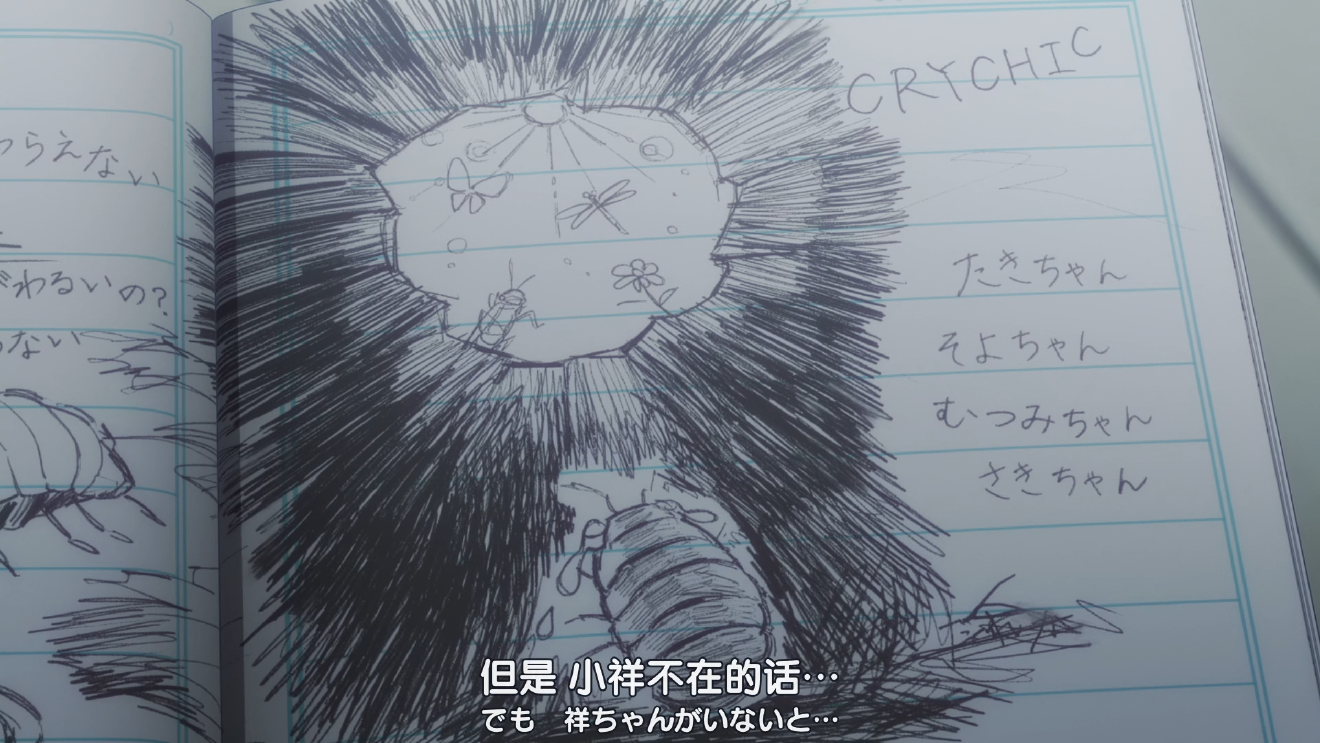 わらえない
がわるいの?
ない
CRYCHIC
たきちゃん
そよちゃん
むつみちゃん
さきちゃん
但是 小祥不在的话…
でも　祥ちゃんがいないと…